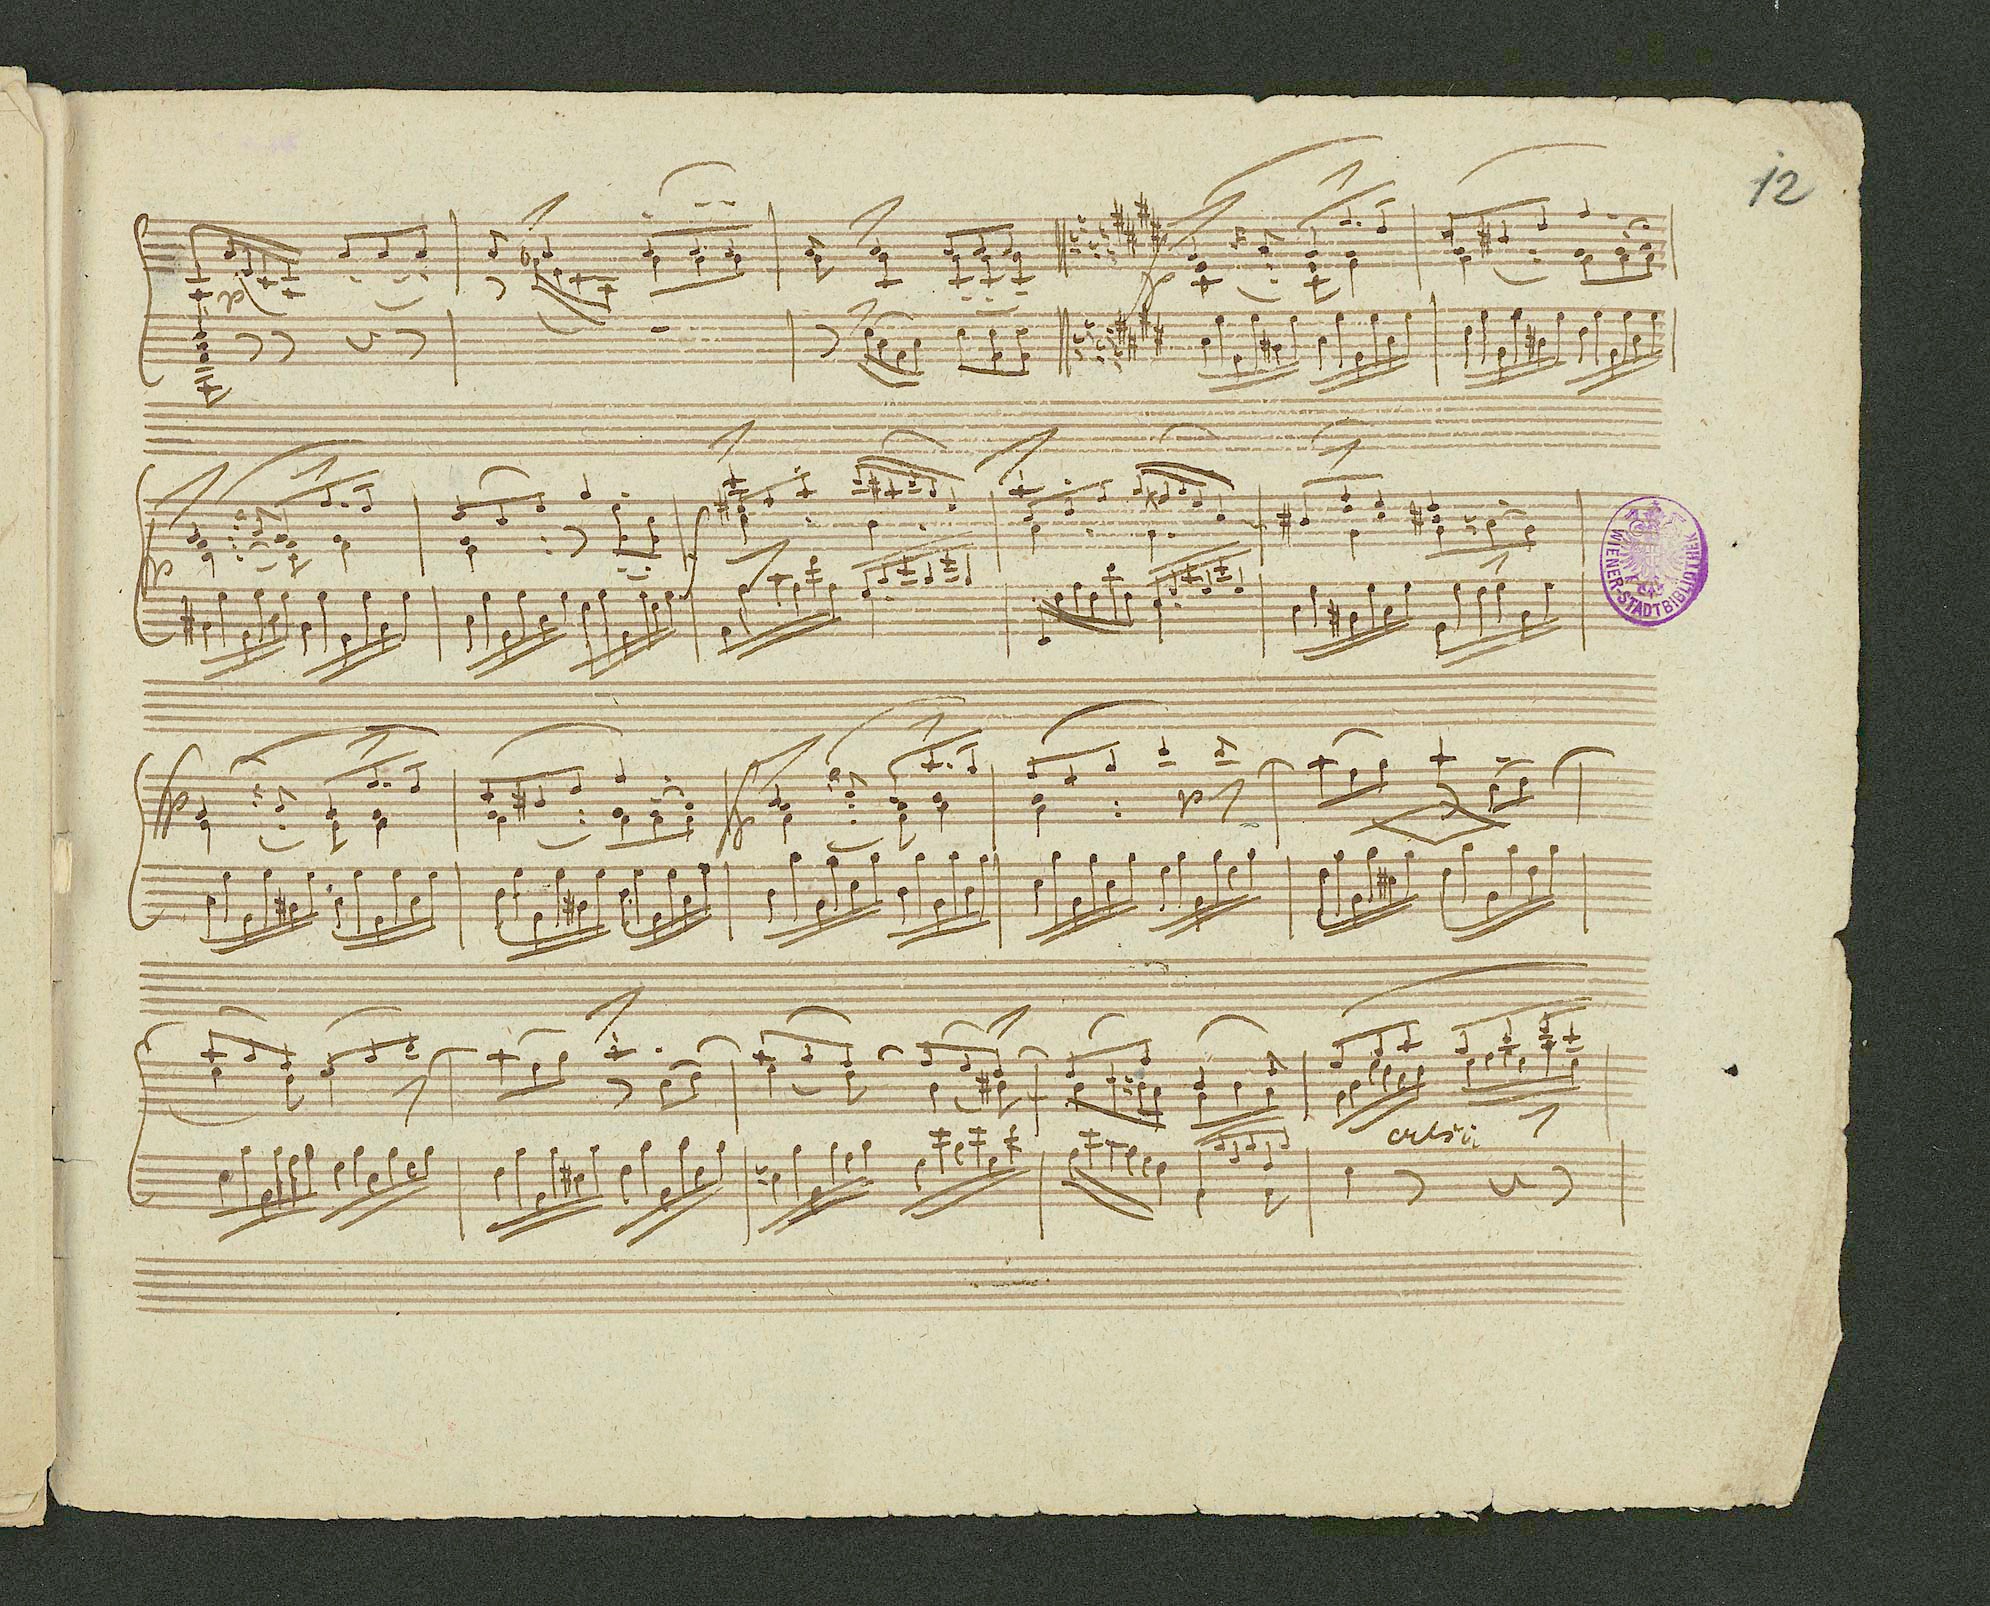 12
WIENER-STADTBIBLIOTHEK
cresc